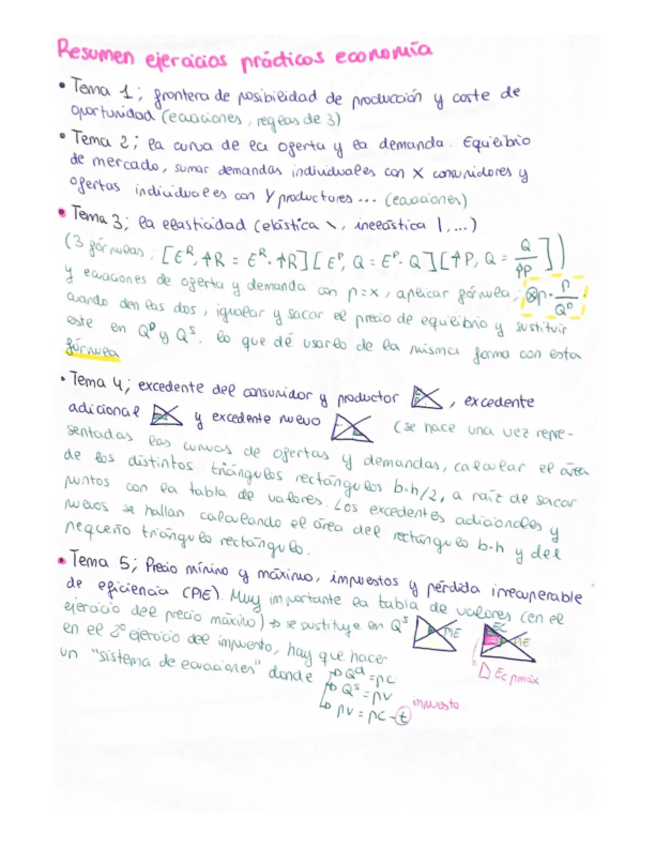 Resumen ejercicios prácticos economía
• Tema 1; frontera de posibilidad de producción y coste de
oportunidad (ecuaciones, reglas de 3)
• Tema 2; la curva de la oferta y la demanda. Equilibrio
de mercado, sumar demandas individuales con X consumidores y
ofertas individuales con Y productores... (ecuaciones)
• Tema 3; la elasticidad (elástica \, inelástica |,...)
(3 fórmulas; [E^R, ↑R = E^R · ↑R] [E^P, Q = E^P · Q] [↑P, Q = Q/↑P])
y ecuaciones de oferta y demanda con p=x, aplicar fórmula; p · P/Q^D
cuando den las dos, igualar y sacar el precio de equilibrio y sustituir
este en Q^D y Q^S. lo que dé usarlo de la misma forma con esta
fórmula
• Tema 4; excedente del consumidor y productor , excedente
adicional y excedente nuevo (se hace una vez repre-
sentadas las curvas de ofertas y demandas, calcular el área
de los distintos triángulos rectángulos b·h/2, a raíz de sacar
puntos con la tabla de valores. Los excedentes adicionales y
nuevos se hallan calculando el área del rectángulo b·h y del
pequeño triángulo rectángulo.
• Tema 5; Precio mínimo y máximo, impuestos y pérdida irrecuperable
de eficiencia (PIE). Muy importante la tabla de valores (en el
ejercicio del precio máximo) → se sustituye en Q^S PIE EC PIE
en el 2º ejercicio del impuesto, hay que hacer
un "sistema de ecuaciones" donde → Q^d = pc EC pmáx
→ Q^s = pv
→ pv = pc - t impuesto